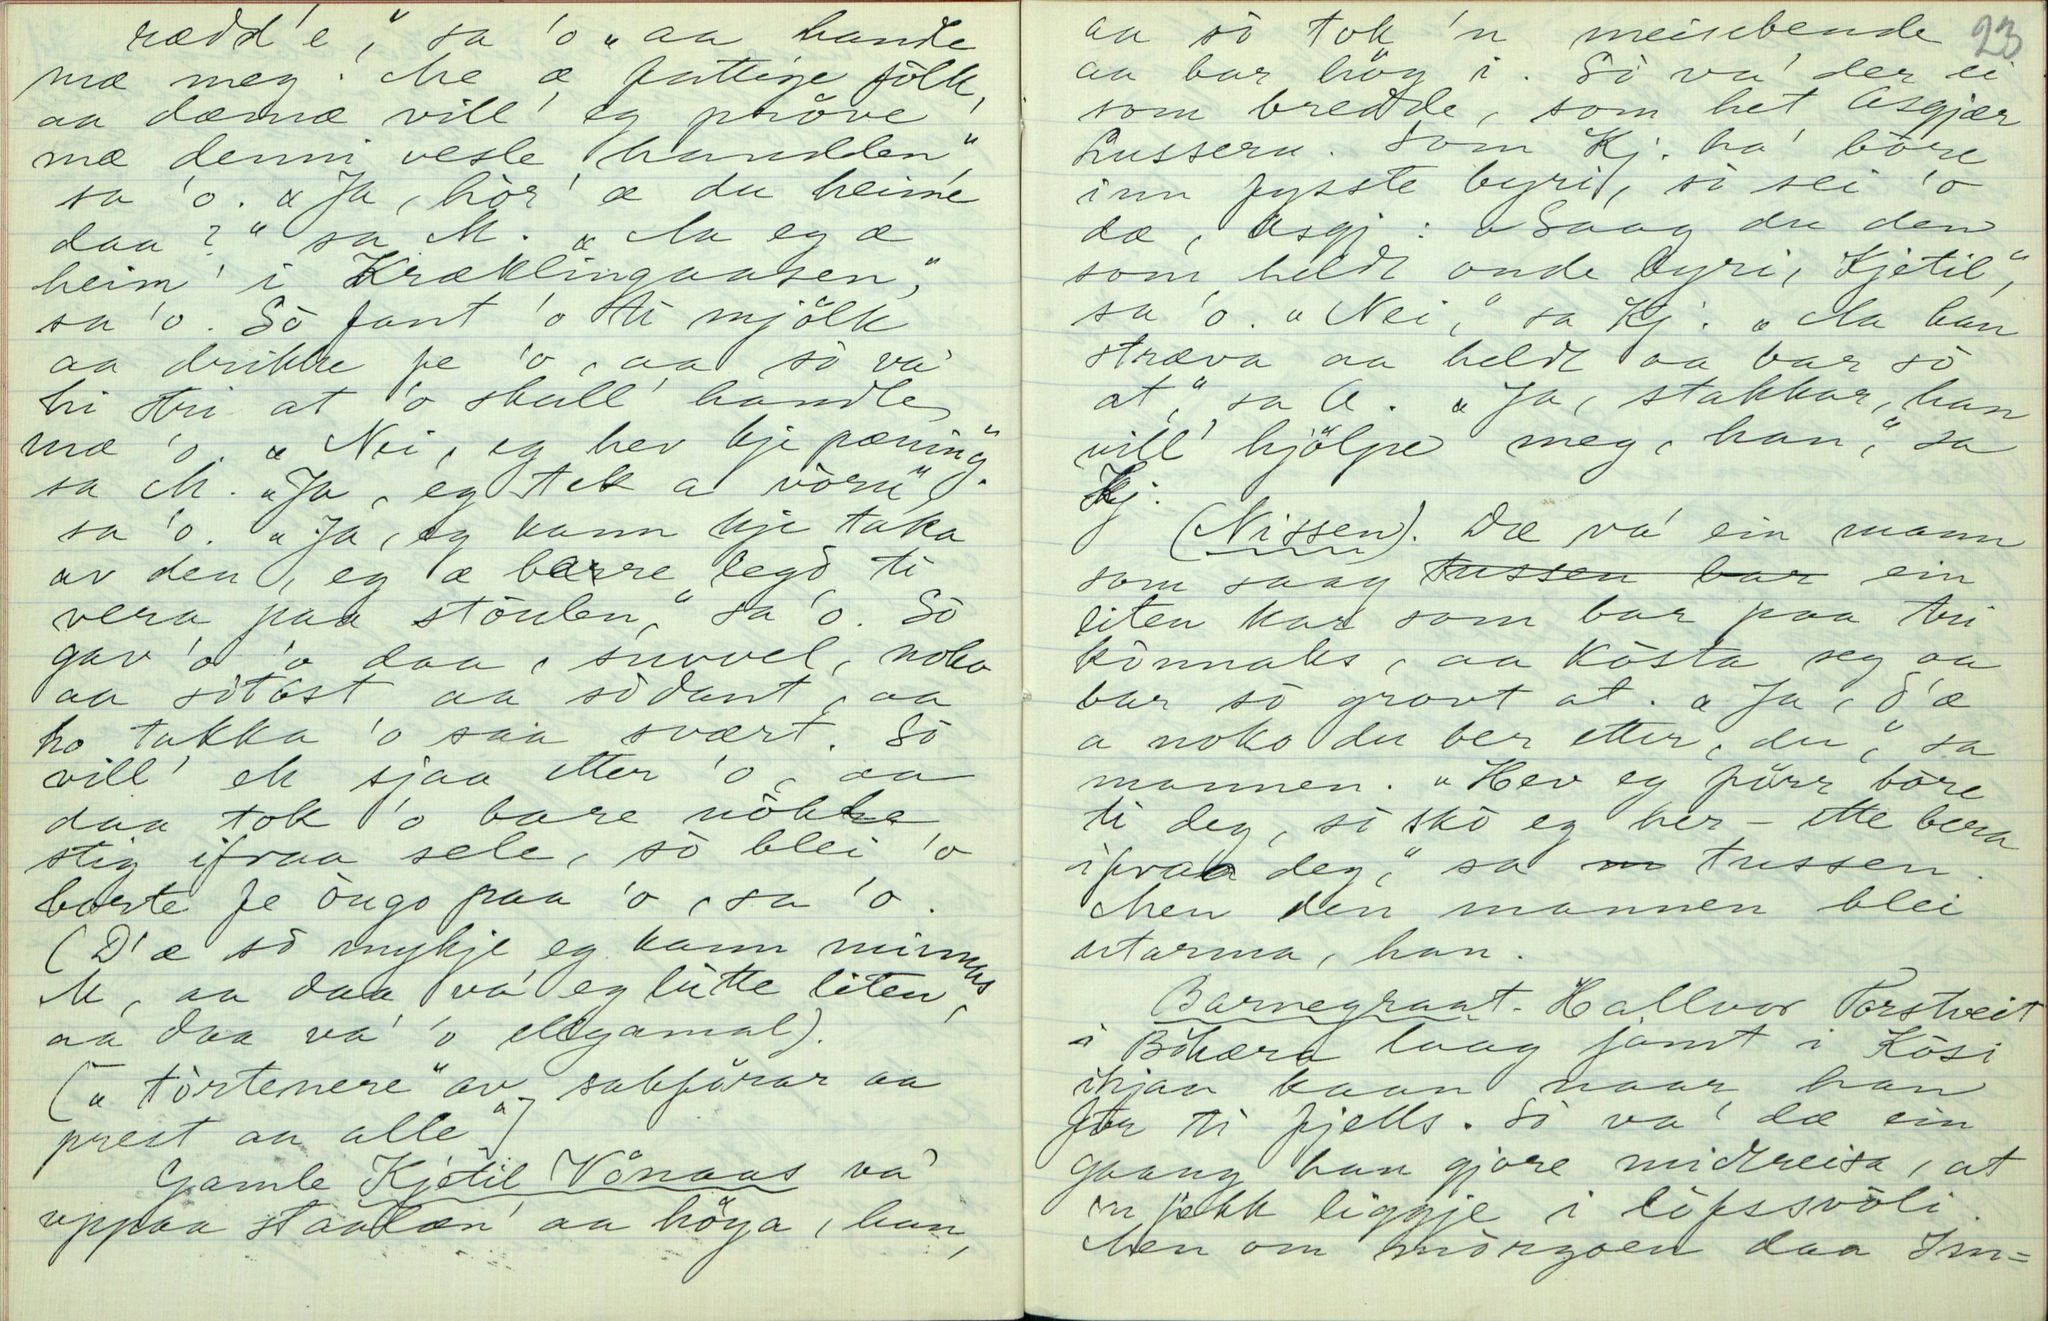 rædd'e," sa 'o „aa handle
mæ meg. Me æ fattige fölk,
aa dæmæ vill' eg pröve
mæ denni vesle handden",
sa 'o. „Ja, hör' æ du heime
daa?" sa M. „Aa eg æ
heim' i Kræklingaasen,"
sa 'o. Sò fant 'o ti mjölk
aa drikke fe 'o, aa sò va'
hi stri at 'o skull' handle
mæ 'o. „Nei, eg hev kje pæning".
sa M. „Ja, eg tek a vöru",
sa 'o. „Ja, eg kann kje taka
av den, eg æ berre legd ti
vera paa stöulen," sa 'o. Sò
gav 'o 'o daa, suvvel, noko
aa sötost aa sòdant, aa
ho takka 'o saa svært. Sò
vill' ek sjaa etter 'o, aa
daa tok 'o bare nökke
stig ifraa sele, sò blei 'o
borte fe öugo paa 'o, sa 'o.
(D'æ sò mykje eg kann minnas
M, aa daa va' eg litte liten,
aa daa va' 'o elgamal).
(„törtenere" av sakförar aa
prest aa alle".)
Gamle Kjetil Vönaas va'
uppaa staalæn' aa höya, han,
23
aa sò tok 'n meisebende
aa bar höy i. Sò va' der ei
som bredde, som het Asgjær
Lussera. Som Kj. ha' böre
inn fysste byri, sò sei 'o
dæ, Asgj: „Saag du den
som heldt onde byri, Kjetil",
sa 'o. „Nei," sa Kj. „Aa han
stræva aa heldt aa bar sò
at," sa A. „Ja, stakkar, han
vill' hjölpe meg, han," sa
Kj.
(Nissen). Dæ va' ein mann
som saag tussen bar ein
liten kar som bar paa tri
könnaks, aa kösta seg aa
bar sò grovt at. „Ja, d'æ
a noko du ber etter, du," sa
mannen. „Hev eg förr böre
ti deg, sò skò eg her-ette bera
ifraa deg," sa tussen.
Men den mannen blei
utarma, han.
Barnegraat. Hallvor Torstveit
i Bökæra laag jamt i Kösi
ihjaa kaan naar han
for ti fjells. Sò va' dæ ein
gaang han gjore midtreisa, at
'n fekk liggje i löfssvöli.
Men om mörgoen daa Im=